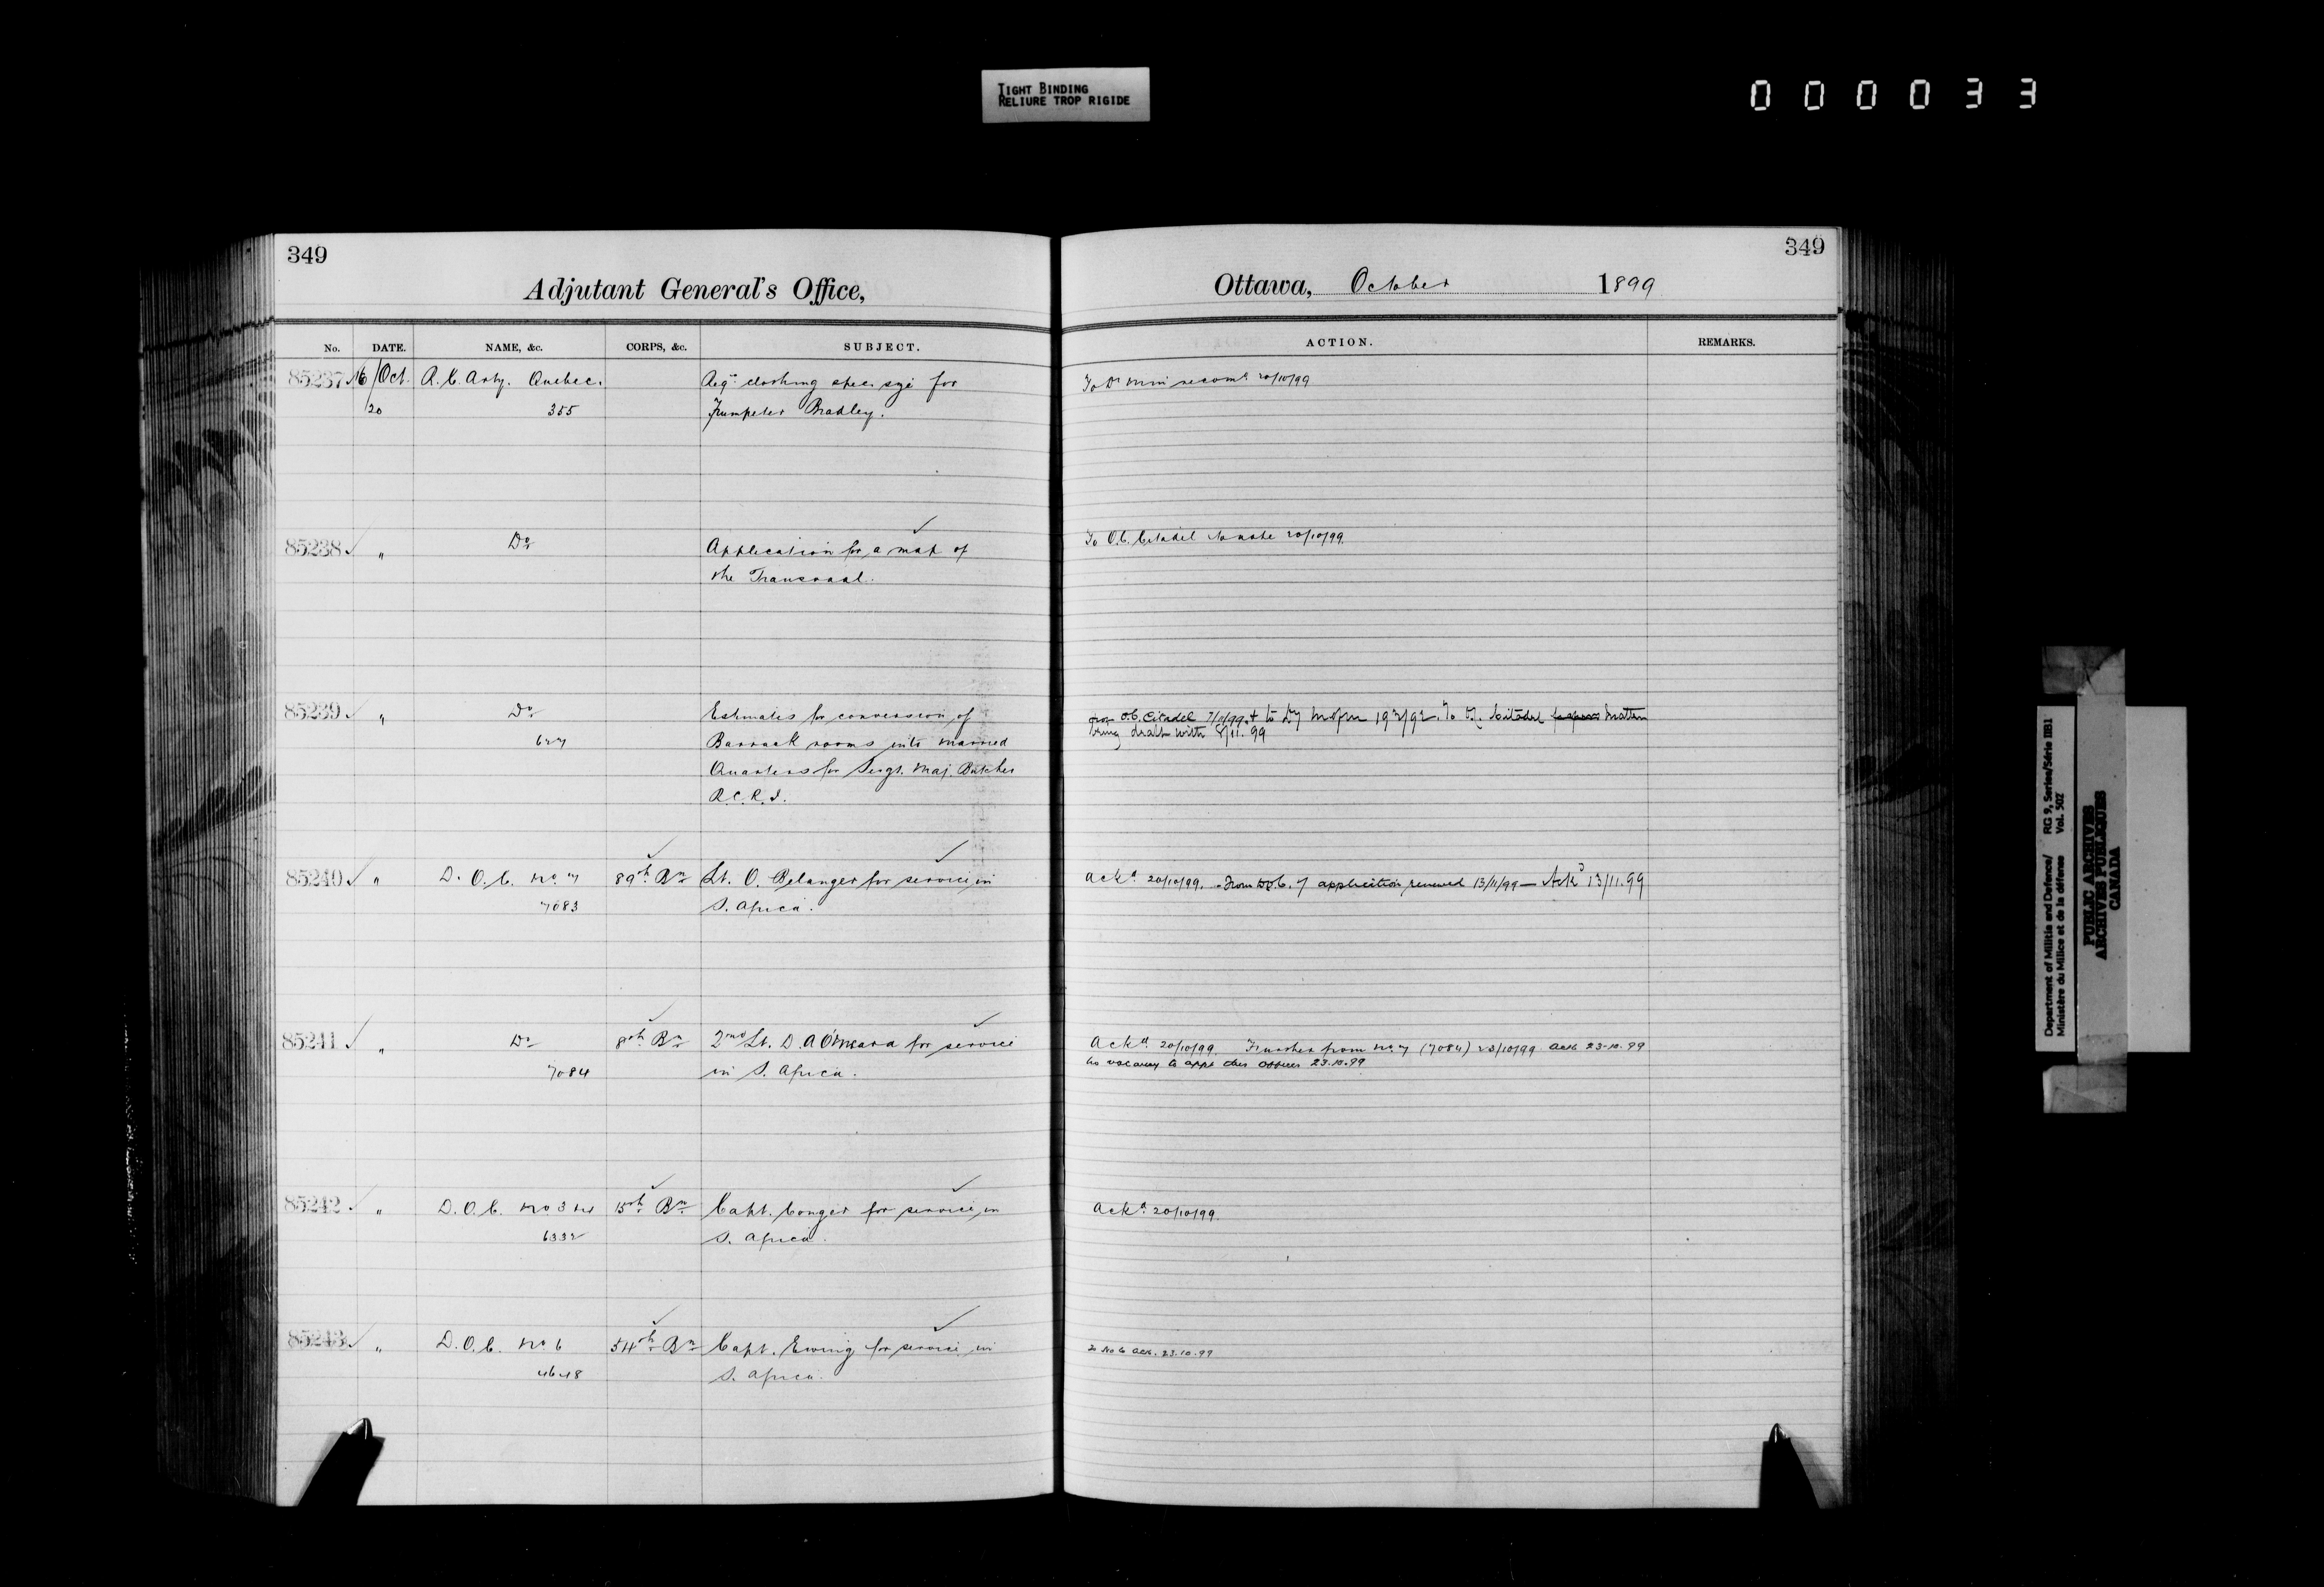 TIGHT BINDING
RELIURE TROP RIGIDE
000033
349
Adjutant General's Office,
No. DATE. NAME, &c. CORPS, &c. SUBJECT.
85237 Oct. R.C. Arty. Quebec. Reqn. clothing spec. size for
20 355 Trumpeter Bradley.
85238 " Do Application for a map of
the Transvaal.
85239 " Do Estimates for conversion of
627 Barrack rooms into married
Quarters for Sergt. Maj. Butcher
R.C.R.I.
85240 " D.O.C. No. 7 89th Bn Lt. O. Belanger for service in
7083 S. Africa.
85241 " Do 8th Bn 2nd Lt. D.A O'Meara for service
7084 in S. Africa.
85242 " D.O.C. No 3 15th Bn Capt. Conger for service in
6332 S. Africa.
85243 " D.O.C. No 6 54th Bn Capt. Ewing for service in
4648 S. Africa.
349
Ottawa, October 1899
ACTION. REMARKS.
To Dr. Min recomd 20/10/99
To O.C. Citadel 20/10/99
O.C. Citadel Citadel matter
being dealt with 8/11.99
Ackd. 20/10/99. From D.O.C. 7 application renewed 13/11/99 — Ackd 13/11.99
Ackd. 20/10/99. Further from No. 7 (7084) 23/10/99 Ack 23.10.99
No vacancy to appt this officer 23.10.99
Ackd. 20/10/99.
To No 6 Ack. 23.10.99
Department of Militia and Defence/ RG 9, Series/Série IIB1
Ministère du Milice et de la défense Vol. 502
PUBLIC ARCHIVES
ARCHIVES PUBLIQUES
CANADA